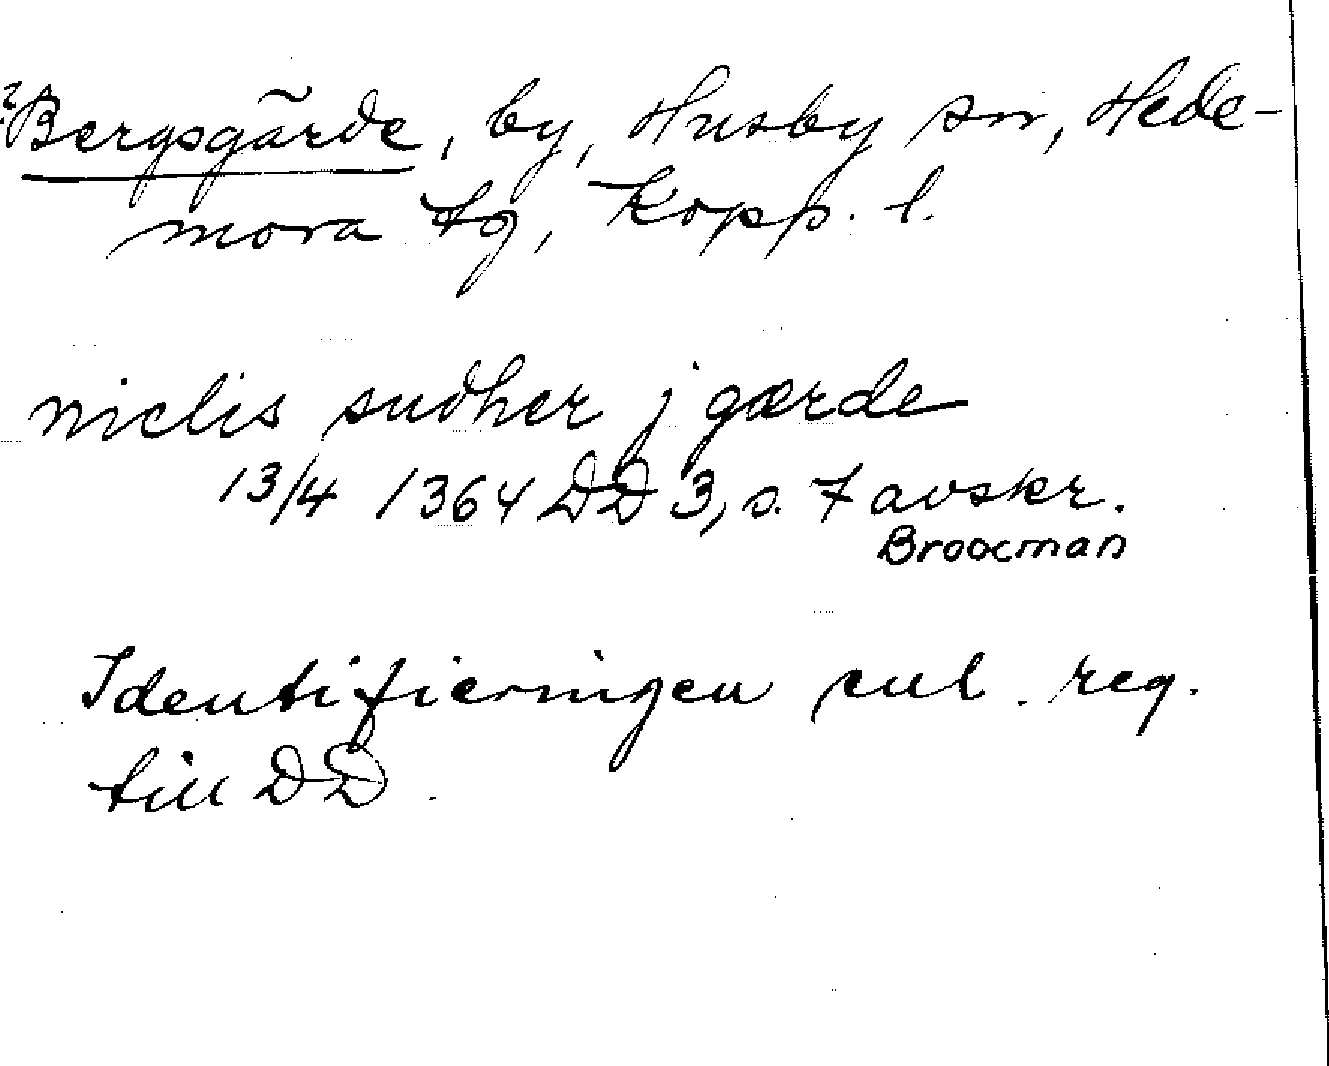 ?Bergsgärde, by, Husby sn, Hede-
mora tg, Kopp. l.
niclis sudher j gærde
13/4 1364 DD 3, s. 7 avskr.
Broocman
Identifieringen enl. reg.
till DD.